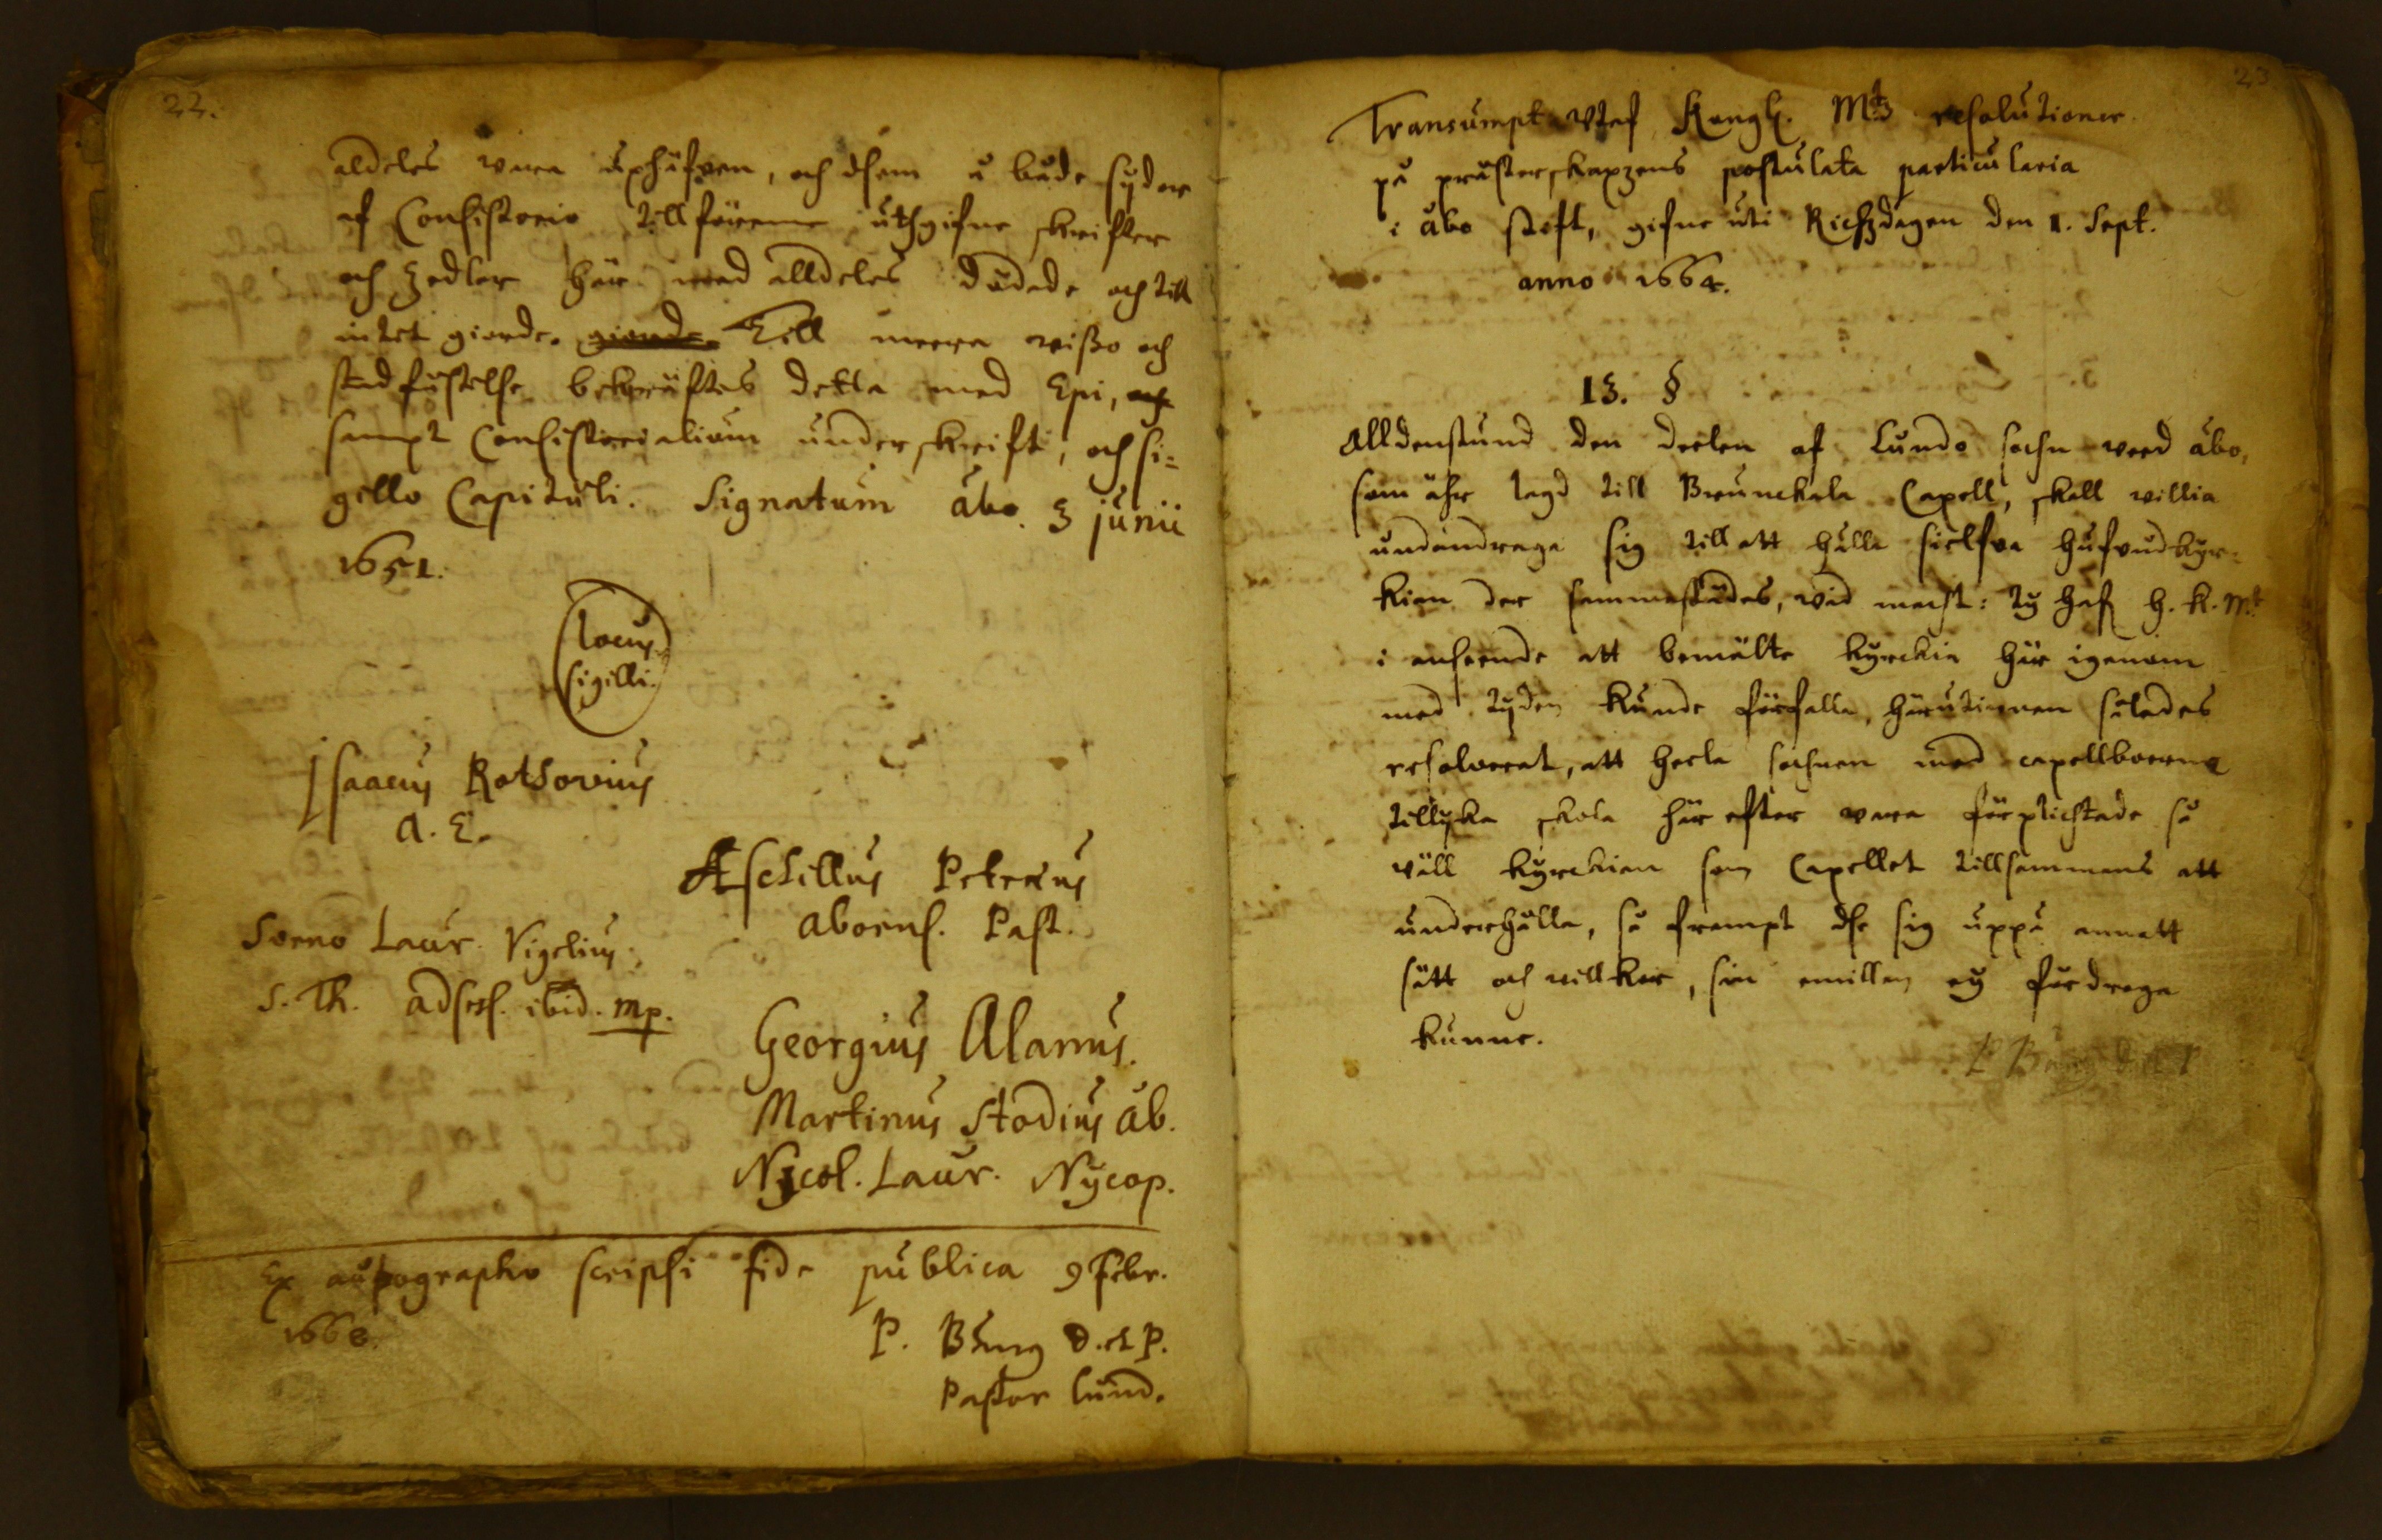 22.
aldeles vara uphäfven, och them å både sydor
af Consistorio tillförenne uthgifne skrifter
och Zedler här med alldeles dödade och till
intet giorde. giorde. Till meera visso och
stadfästelse bekräftes detta med Epi, och
sampt Consistorialium underskrift, och si=
gillo Capituli. Signatum Åbo. 3 junii
1651.
Locus
Sigilli.
Isaacus Rothovius
A. E.
Æschillus Petræus
Aboens. Past.
Sveno Laur. Vigelius.
S. Th. adsess. ibid. mp.
Georgius Alanus.
Martinus Stodius Ab.
Nycol. Laur. Nycop.
Ex autographo scripsi fide publica 9 Febr.
1668.
P. Bång D. et P.
Pastor Lund.
23
Transumpt utaf Kongl. Mtz resolutioner
på prästerskapzens postulata particularia
i Åbo stift, gifne uti Richzdagen den 1. Sept.
anno 1664.
13. §
Alldenstund den deelen af Lundo sochn weed Åbo,
som ähr lagd till Brunckala Capell, skall willia
undandraga sig till att hålla sielfva hufvudkyr-
kian der sammastädes, vid macht: ty haf. H. K. Mt
i anseende att bemälte kyrckia här igenom
med tyden kunde förfalla, härutinnan således
resolverat, att heela sochnen med capellboerna
tillijka skola här efter vara förplichtade så
väll kyrckian som Capellet tillsammans att
underhålla, så frampt the sig uppå annatt
sätt och villkor, sin emillan ey fördraga
kunne.
P Bång D et P